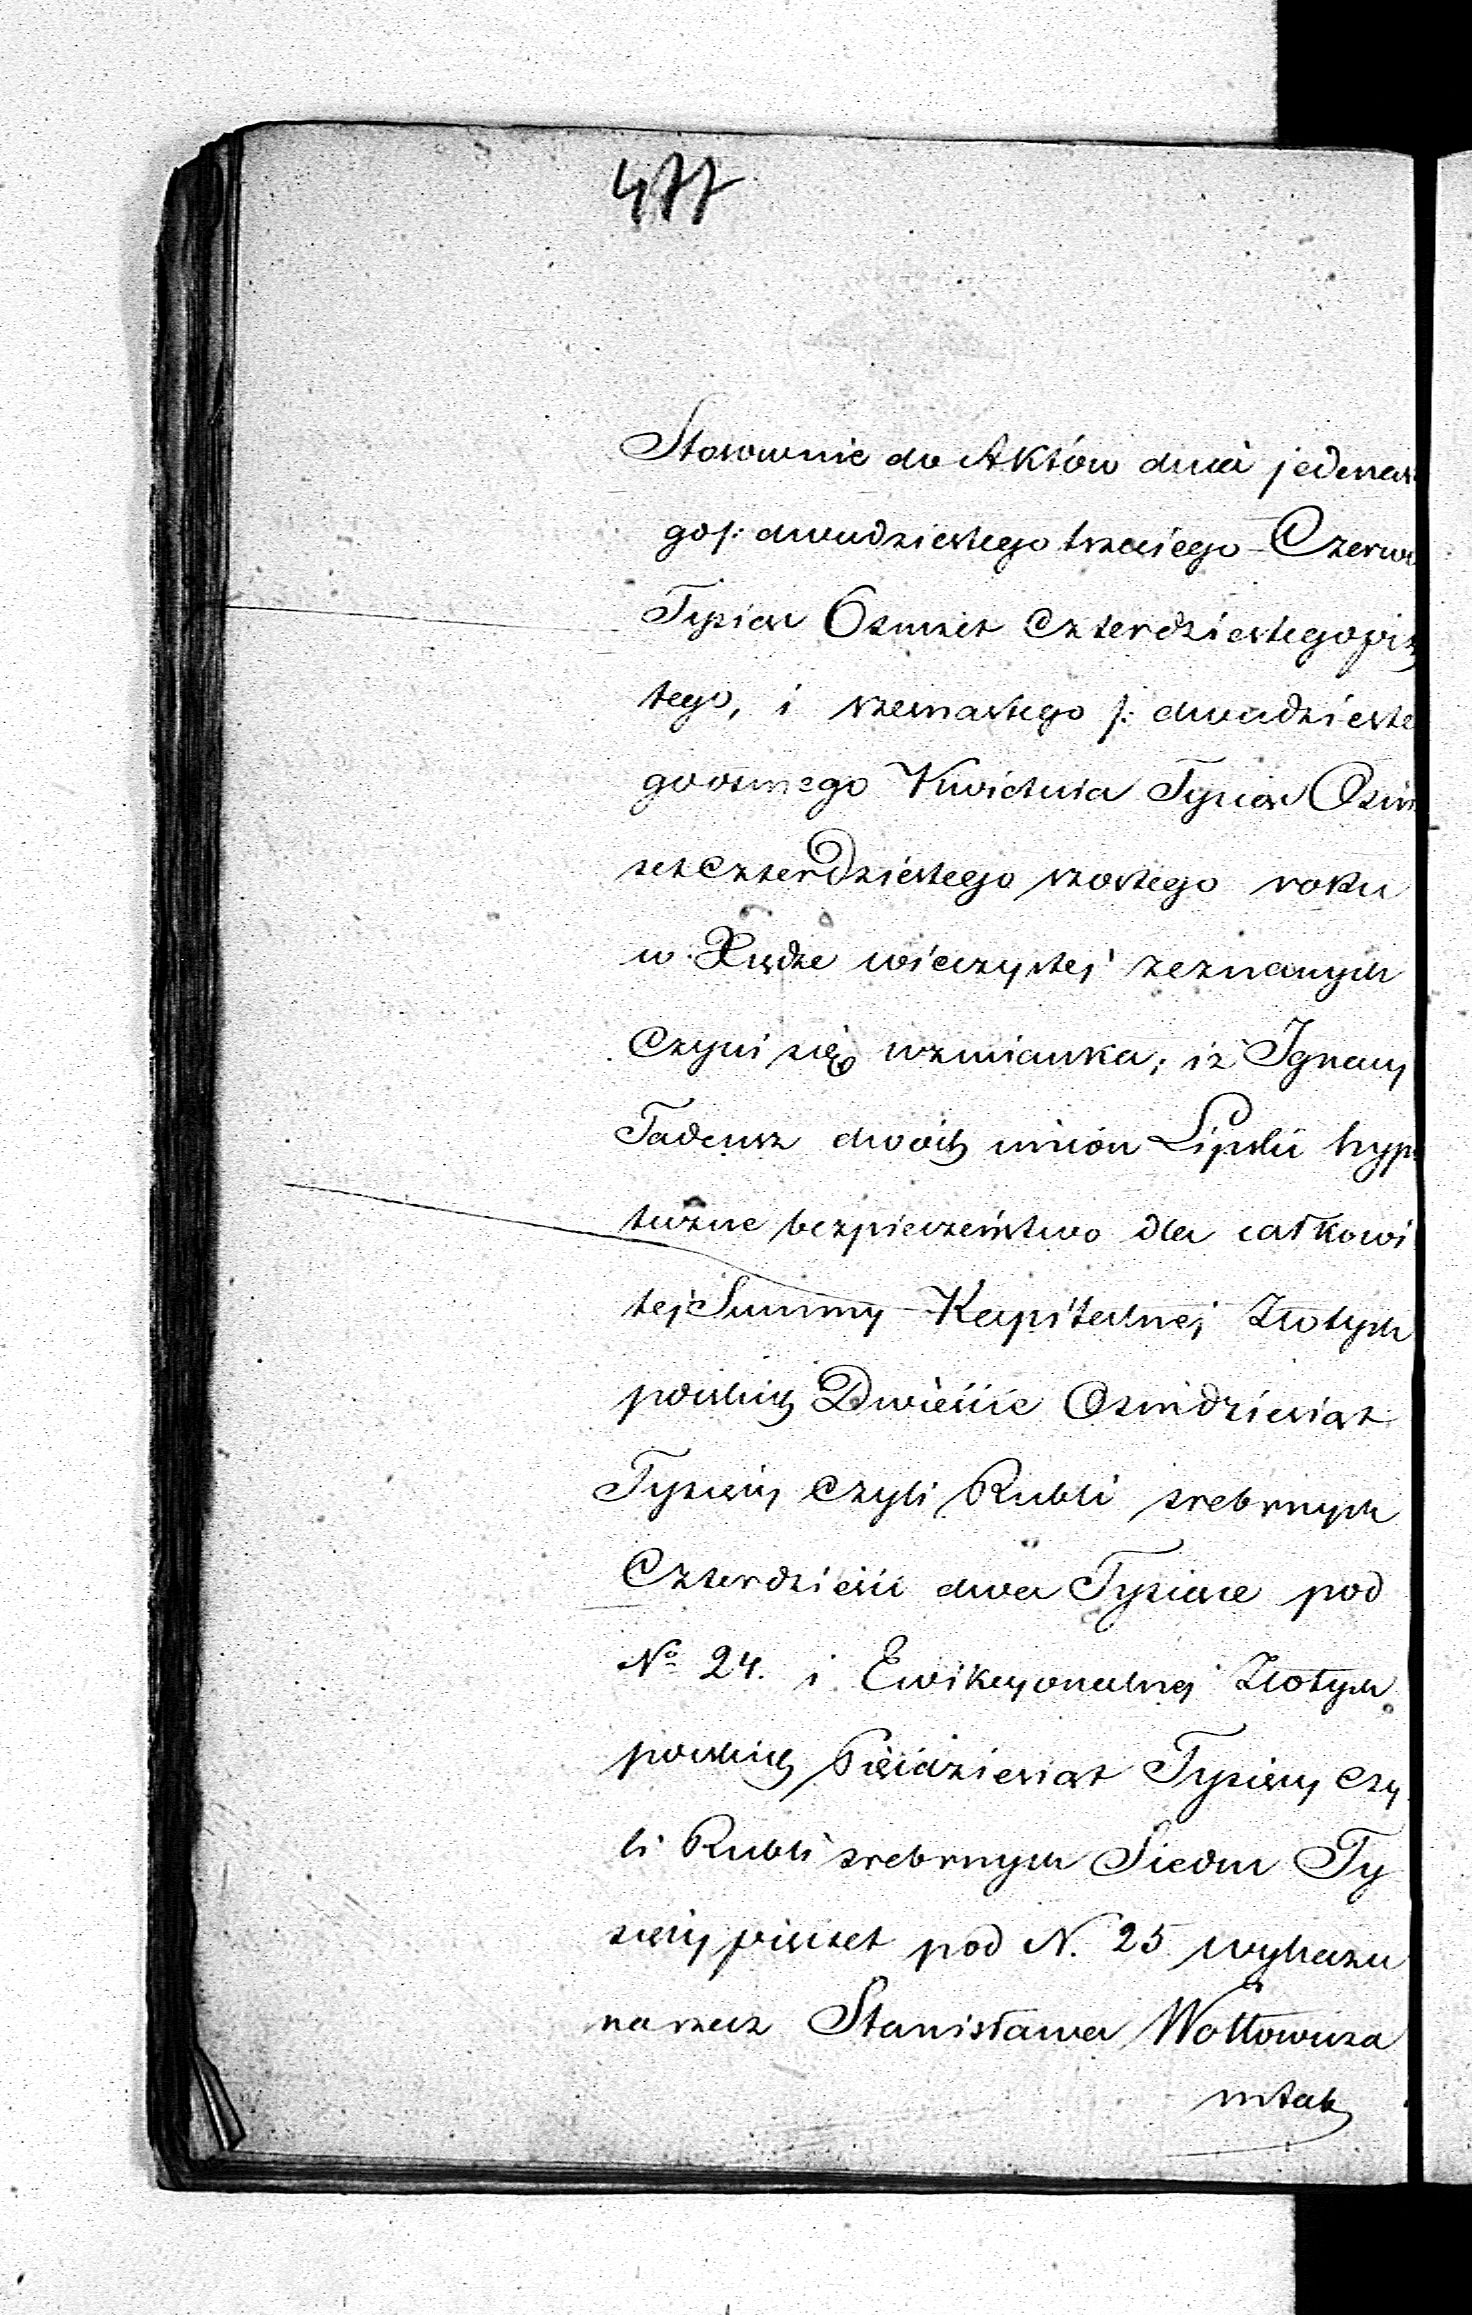 477
Stosownie do Aktów dnia jedenas
go /: dwudziestego trzeciego Czerw
Tysiąc Ośmset Czterdziestegopią
tego, i szesnastego /: dwudzieste
goosmego Kwietnia Tysiąc Ośm
set Czterdziestego szóstego roku
w Xiędze wieczystej zeznanych
Czyni się wzmianka; iż Ignacy
Tadeusz dwóch imion Lipski hypo
teczne bezpieczeństwo dla całkowi
tej Summy Kapitalnej Złotych
polskich Dwieście Ośmdziesiąt
Tysięcy Czyli Rubli srebrnych
Czterdzieści dwa Tysiące pod
No 24. i Ewikcyonalnej Złotych
polskich Pięćdziesiąt Tysięcy Czy
li Rubli srebrnych Siedm Ty
sięcy pięćset pod N. 25 wykazu
na rzecz Stanisława Wołłowicza